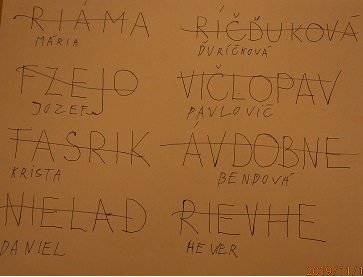 RIÁMA
MÁRIA
RÍČĎUKOVA
ĎURÍČKOVÁ
FZEJO
JOZEF
VIČLOPAV
PAVLOVIČ
TASRIK
KRISTA
AVDOBNE
BENDOVÁ
NIELAD
DANIEL
RIEVHE
HEVER